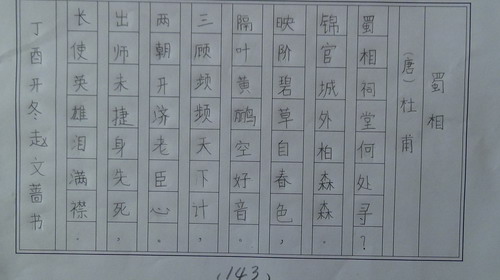 蜀相
(唐)杜甫
蜀相祠堂何处寻?
锦官城外柏森森.
映阶碧草自春色,
隔叶黄鹂空好音.
三顾频频天下计,
两朝开济老臣心.
出师未捷身失死,
长使英雄泪满襟.
丁酉开冬赵文蔷书
(143)